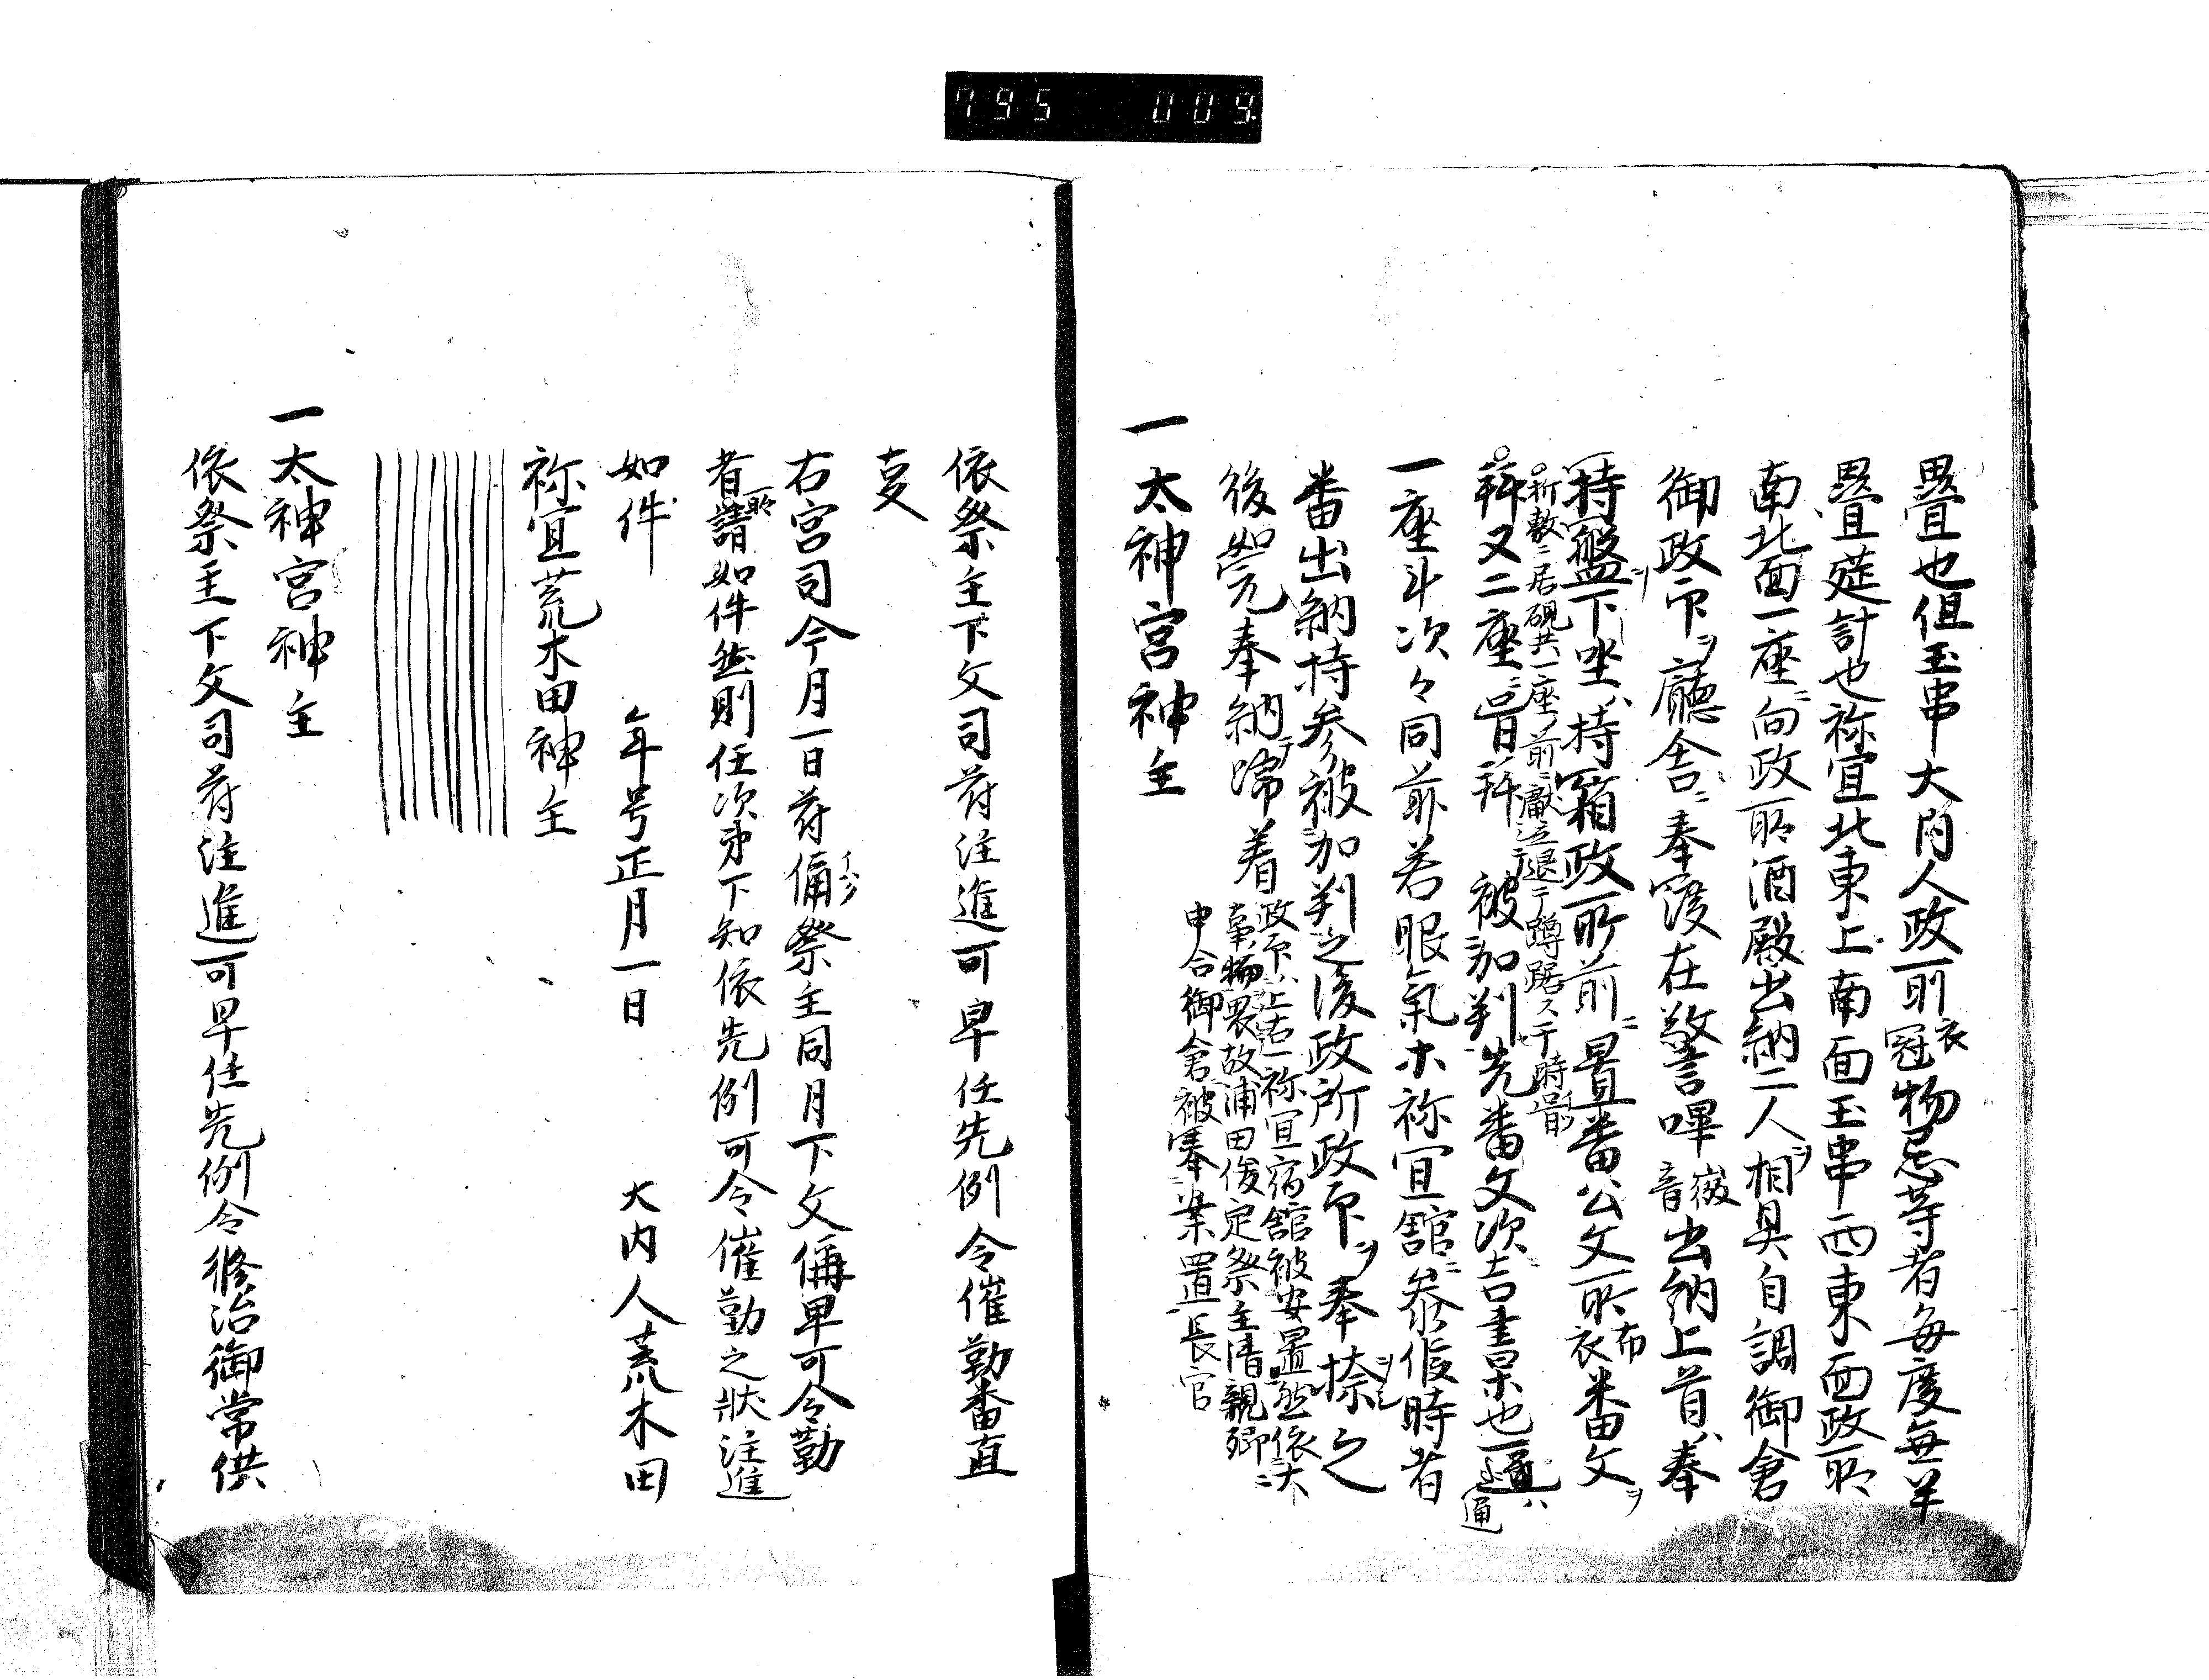 795 009
畳也但玉串大内人政所衣冠物忌等者毎度無半
畳莚計也祢宜北東上南面玉串西東面政所
南北面一座ニ向政所酒殿出納二人ヲ相具自調御倉
御政印ヲ廳舎ニ奉渡在警蹕微音出納上首ハ奉
持盤ヲ下坐ハ持箱政所前ニ置番公文所布衣番文ヲ
折敷ニ居硯共一座ノ前ニ献之退テ蹲踞ス于時召前
拝又二座ニ召拝 被加判先番文次ニ吉書杲也一通ハ
通
一座斗次々同前若眼氣ホ祢宜舘ニ参候時者
番出納持参被加判之後政所政印ヲ奉捺之
後如元奉納テ帰着
政印ハ上古一祢宜宿舘被安置然依大
事物畏故浦田俊定祭主清親卿ニ
申合御倉被奉案置長官
一 太神宮神主
依祭主下文司符注進可早任先例令催勤番直
叓
右宮司今月一日符偁祭主同月下文偁早可令勤
者所請如件然則任次第下知依先例可令催勤之状注進
如件 年号正月一日 大内人荒木田
祢宜荒木田神主
一太神宮神主
依祭主下文司符注進可早任先例令修治御常供